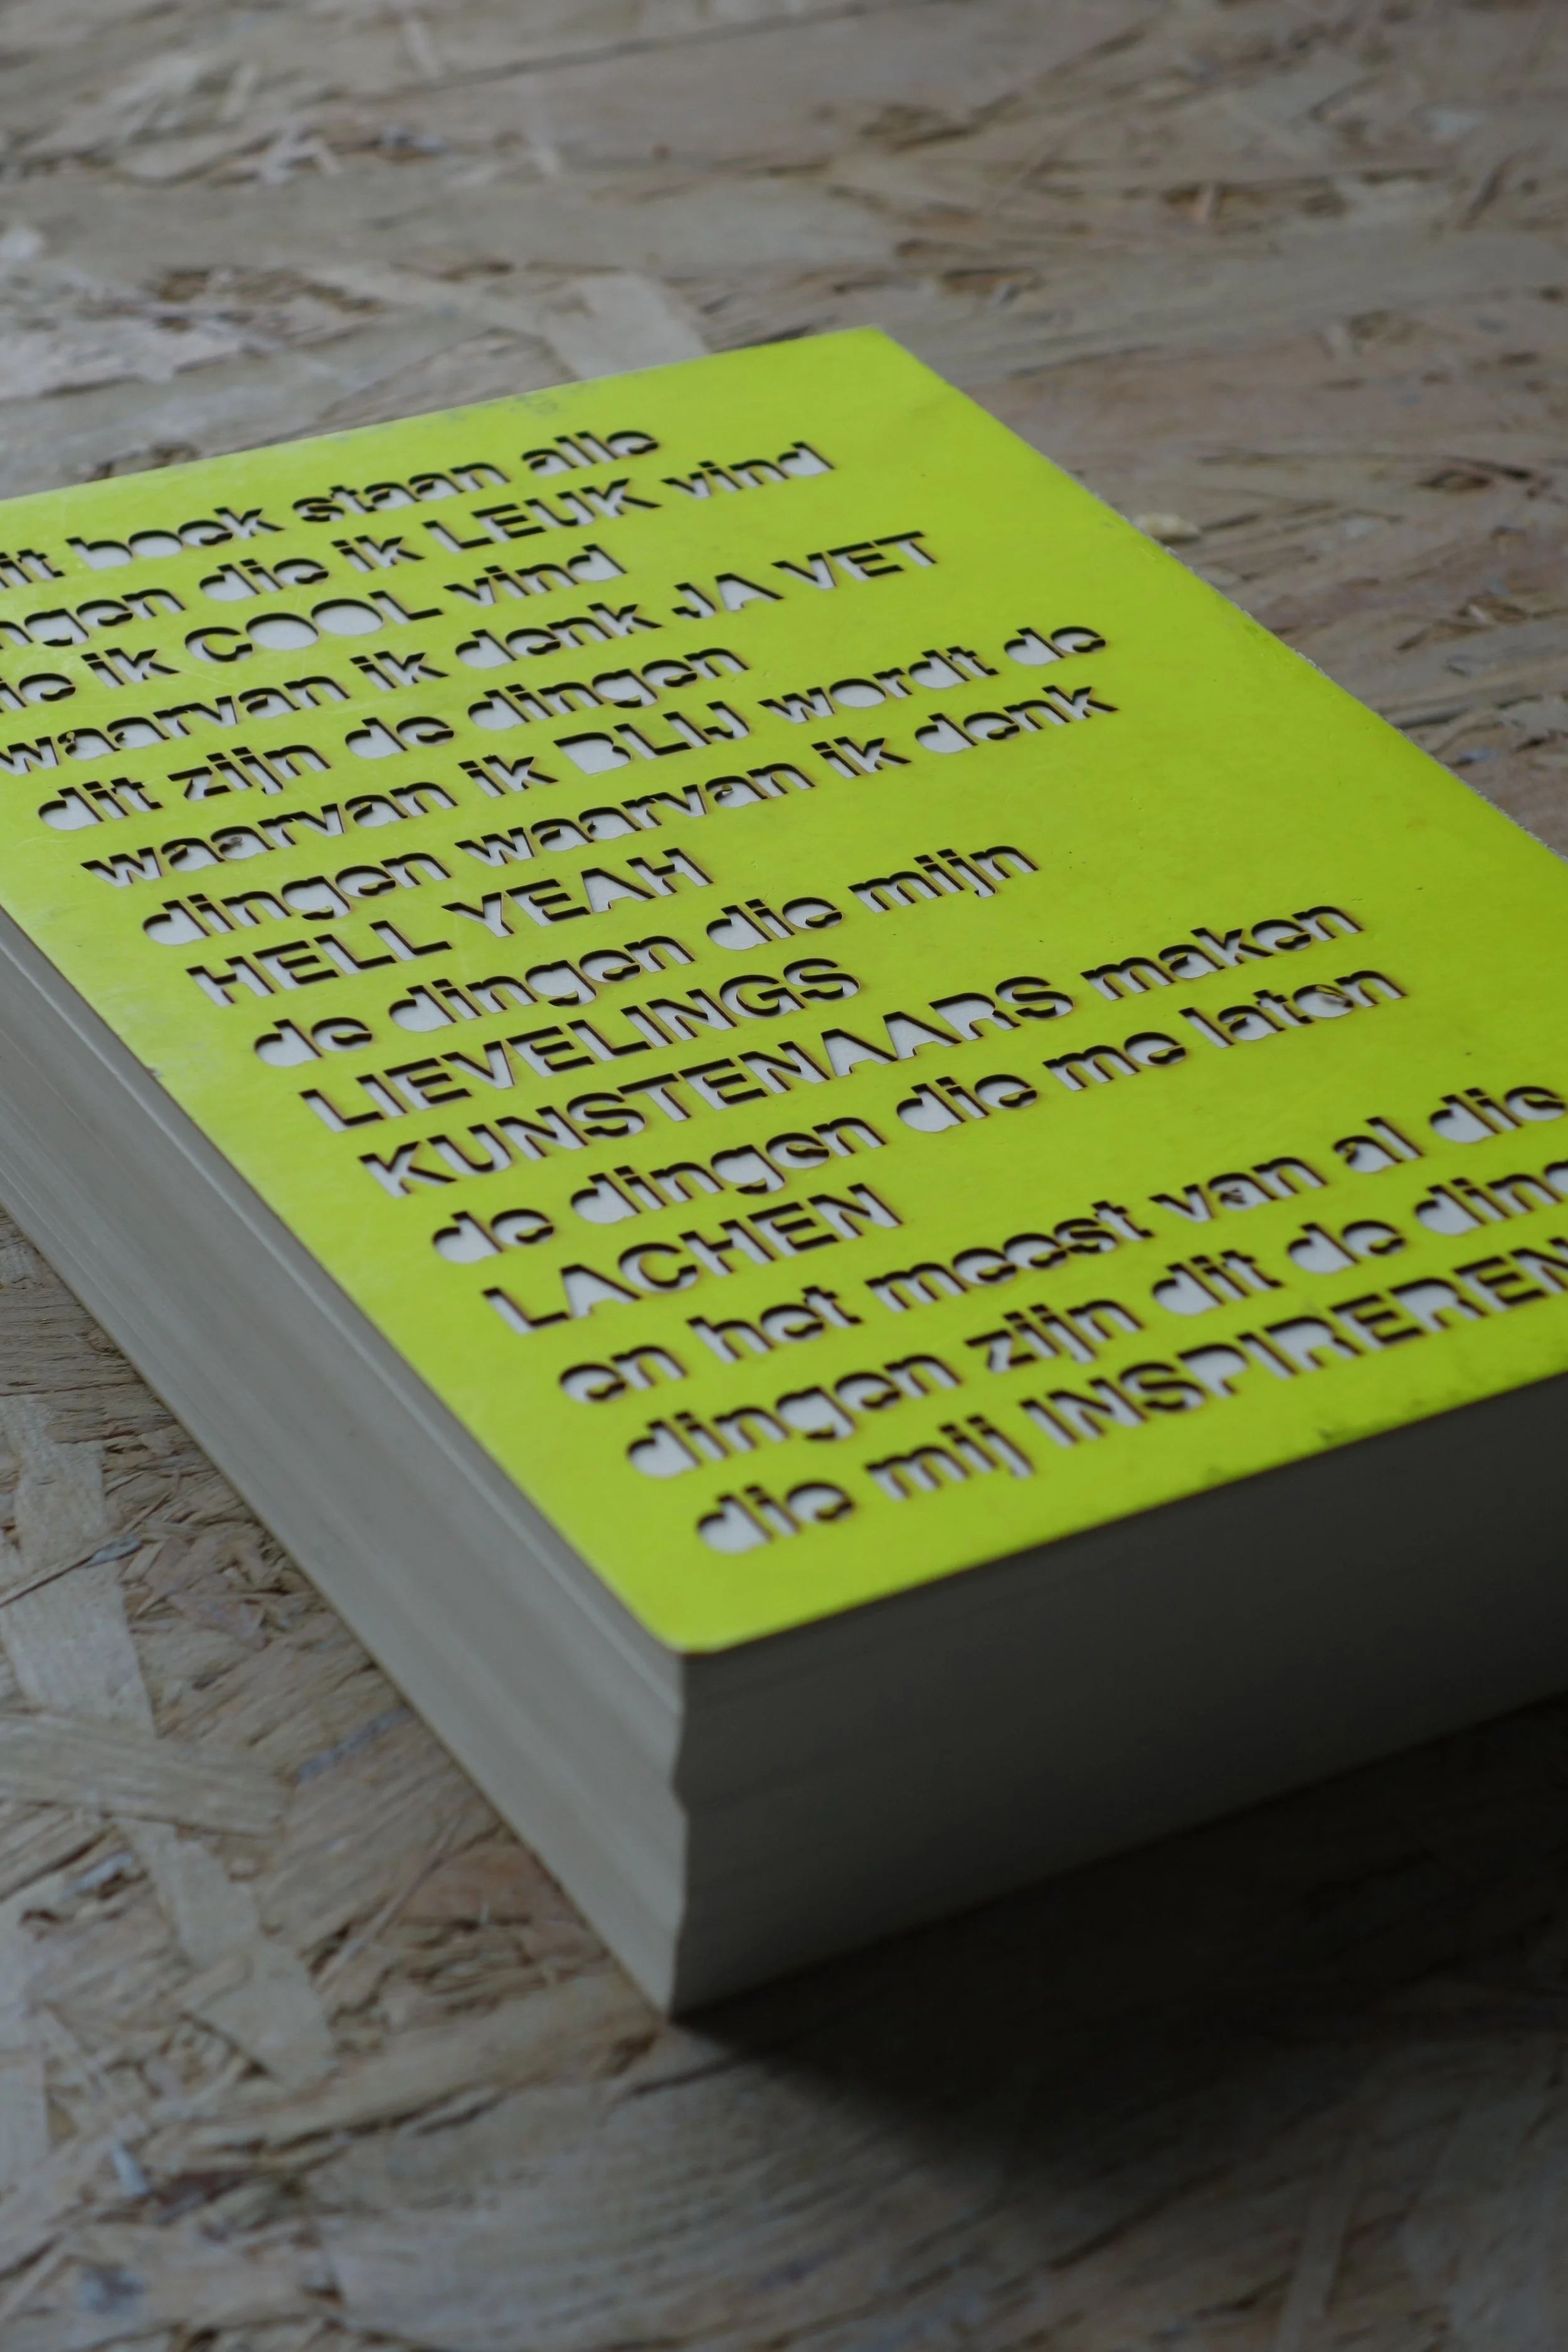 dit boek staan alle
ngen die ik LEUK vind
die ik COOL vind
waarvan ik denk JA VET
dit zijn de dingen
waarvan ik BLIJ wordt de
dingen waarvan ik denk
HELL YEAH
de dingen die mijn
LIEVELINGS
KUNSTENAARS maken
de dingen die me laten
LACHEN
en het meest van al die
dingen zijn dit de ding
die mij INSPIREREN